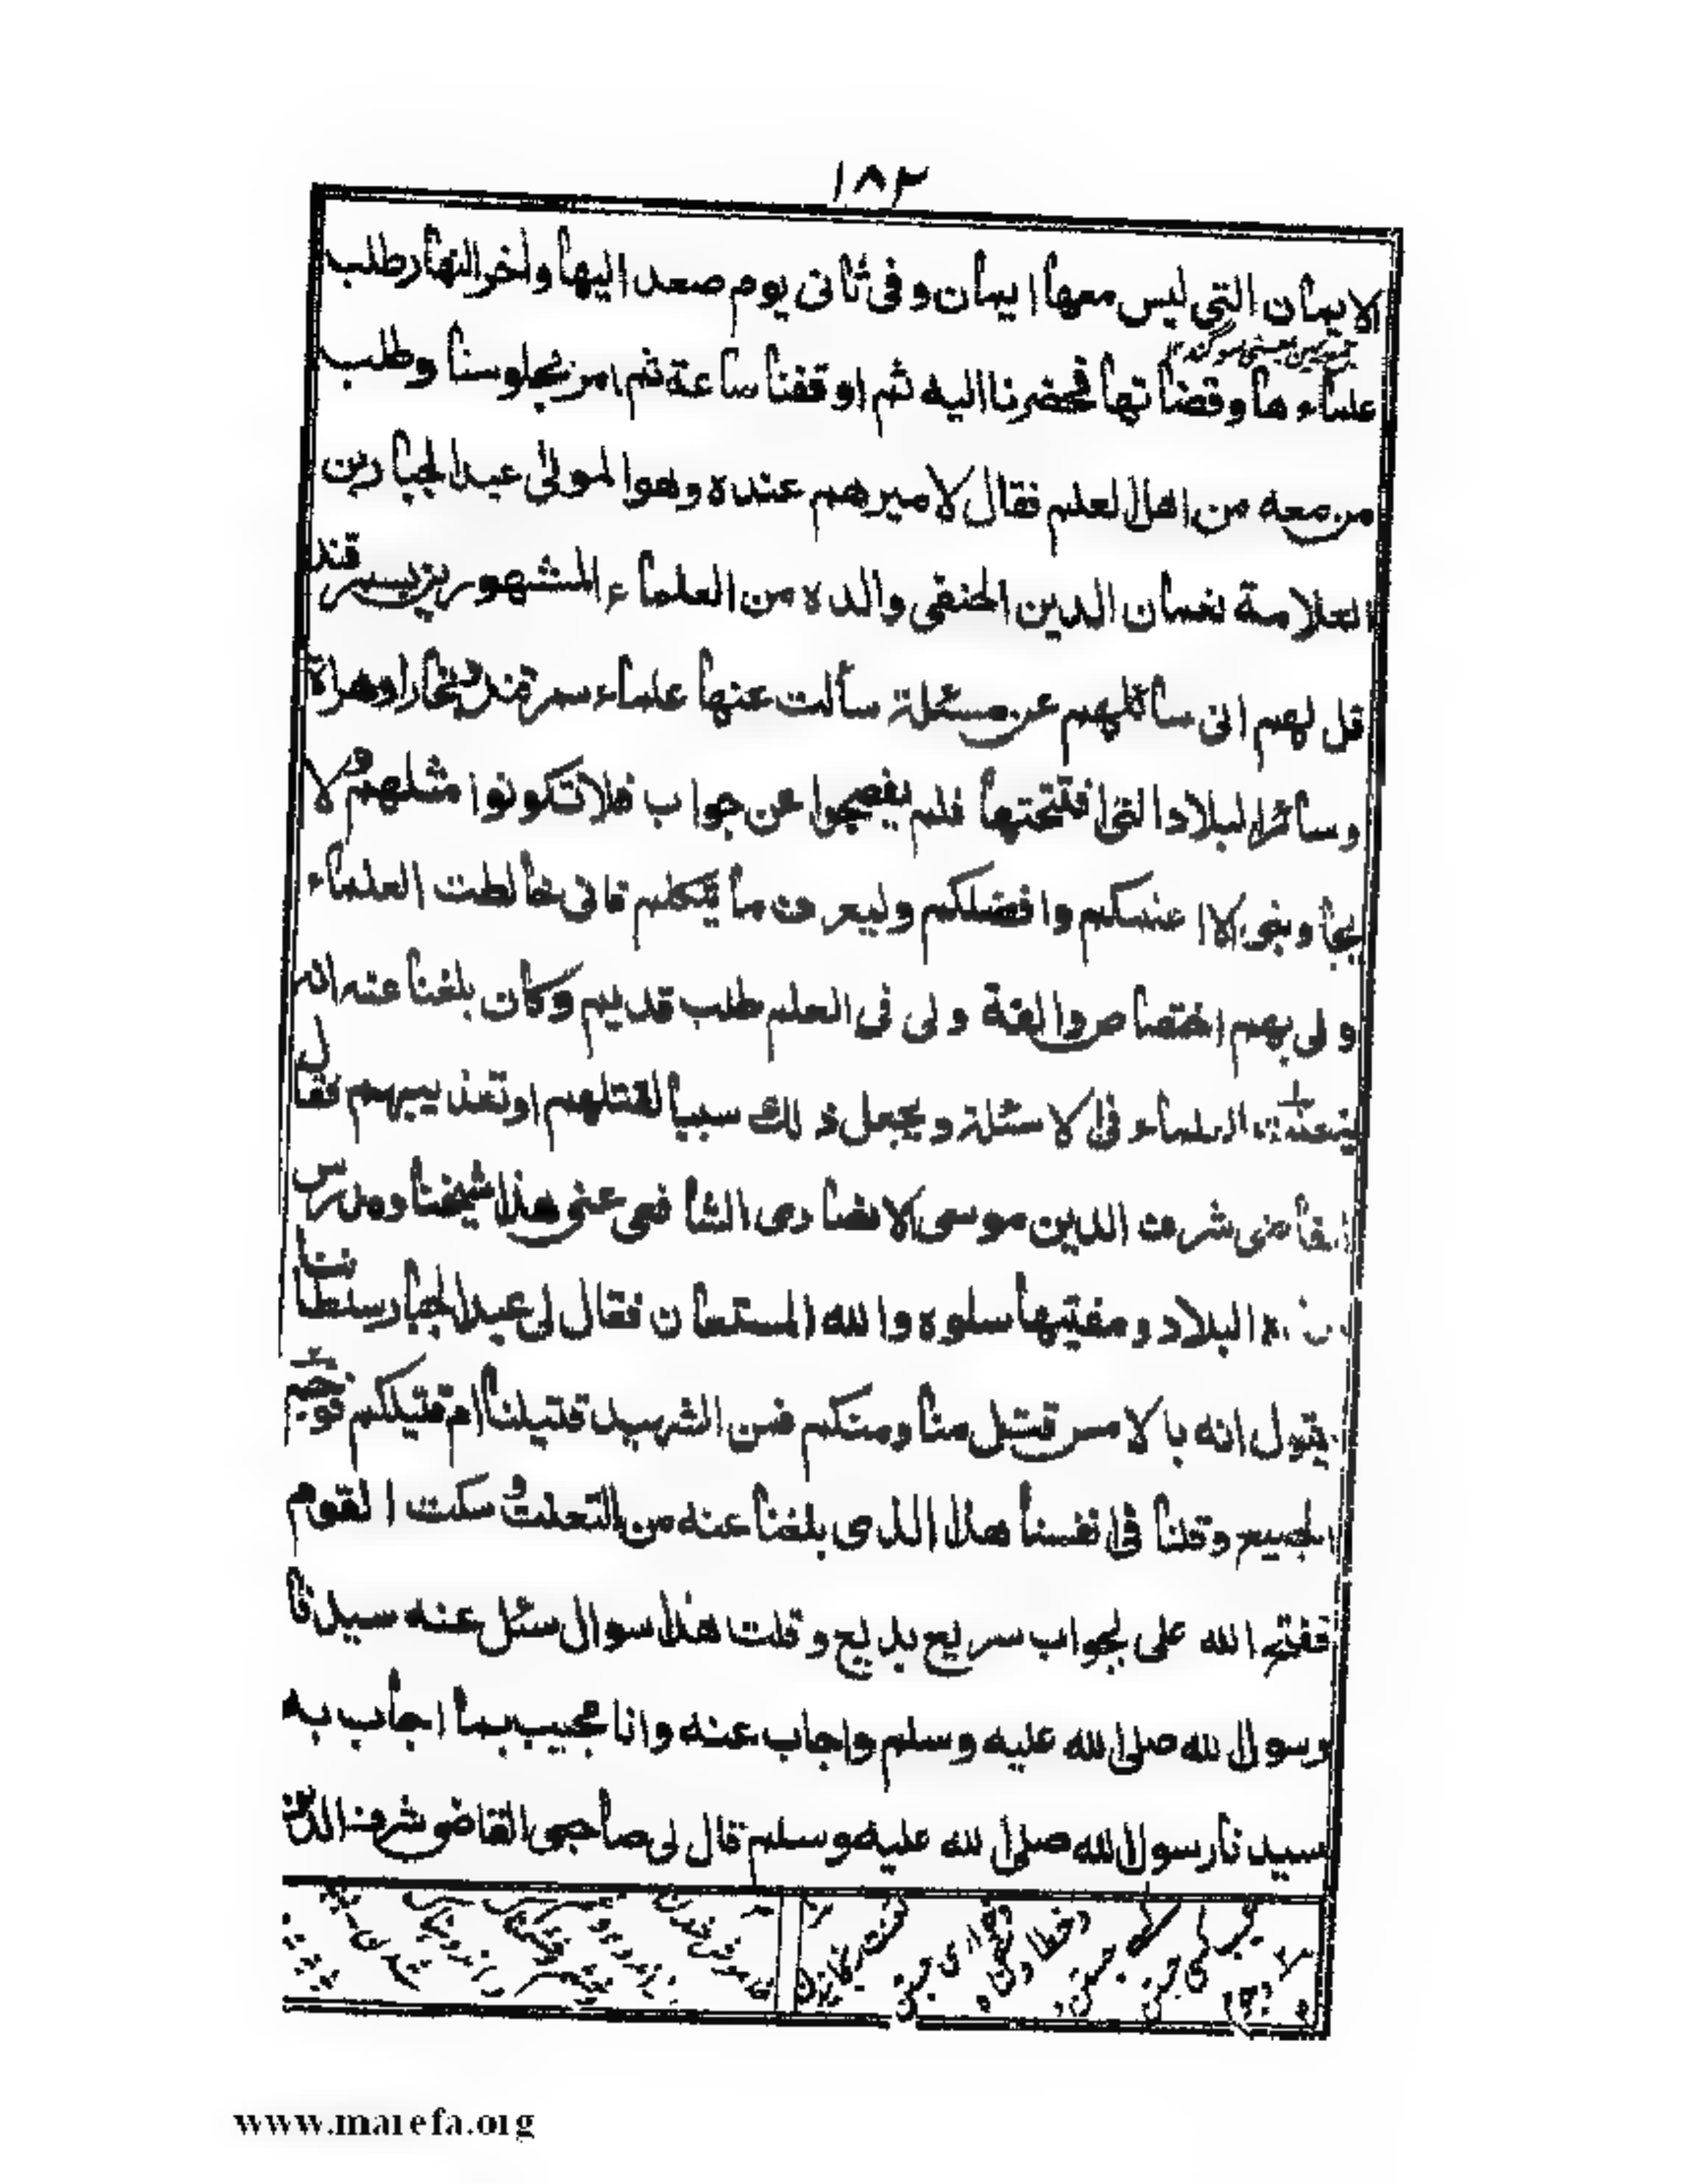 ١٨٣
الايمان التي ليس معها ايمان وفى ثانى يوم صعد اليها واخر النهار طلب
علماءها وقضاتها فحضرنا اليه ثم اوقفنا ساعة ثم امر بجلوسنا وطلب
من معه من اهل العلم فقال لاميرهم عنده وهو المولى عبد الجبار بن
العلامة نعمان الدين الحنفى والده من العلماء المشهورين بسمرقند
قل لهم انى سائلهم عن مسئلة سألت عنها علماء سمرقند وبخارا وهراة
وسائر البلاد التى افتتحتها فلم يفصحوا عن جواب فلا تكونوا مثلهم ولا
يجاوبنى الا اعلمكم وافضلكم وليعرف ما يتكلم فانى خالطت العلماء
ولى بهم اختصاص والفة ولى فى العلم طلب قديم وكان بلغنا عنه انه
يتعنت العلماء فى الاسئلة ويجعل ذلك سببا لقتلهم او تعذيبهم فقال
القاضى شرف الدين موسى الانصارى الشافعى عنى هذا شيخنا ومدرس
هذه البلاد ومفتيها سلوه والله المستعان فقال لى عبد الجبار سلطاننا
يقول انه بالامس قتل منا ومنكم فمن الشهيد قتيلنا ام قتيلكم فوجم
الجميع وقلنا فى انفسنا هذا الذى بلغنا عنه من التعنت وسكت القوم
ففتح الله على بجواب سريع بديع وقلت هذا سوال سئل عنه سيدنا
رسول الله صلى الله عليه وسلم واجاب عنه وانا مجيب بما اجاب به
سيدنا رسول الله صلى الله عليه وسلم قال لى صاحبى القاضى شرف الدين
www.marefa.org